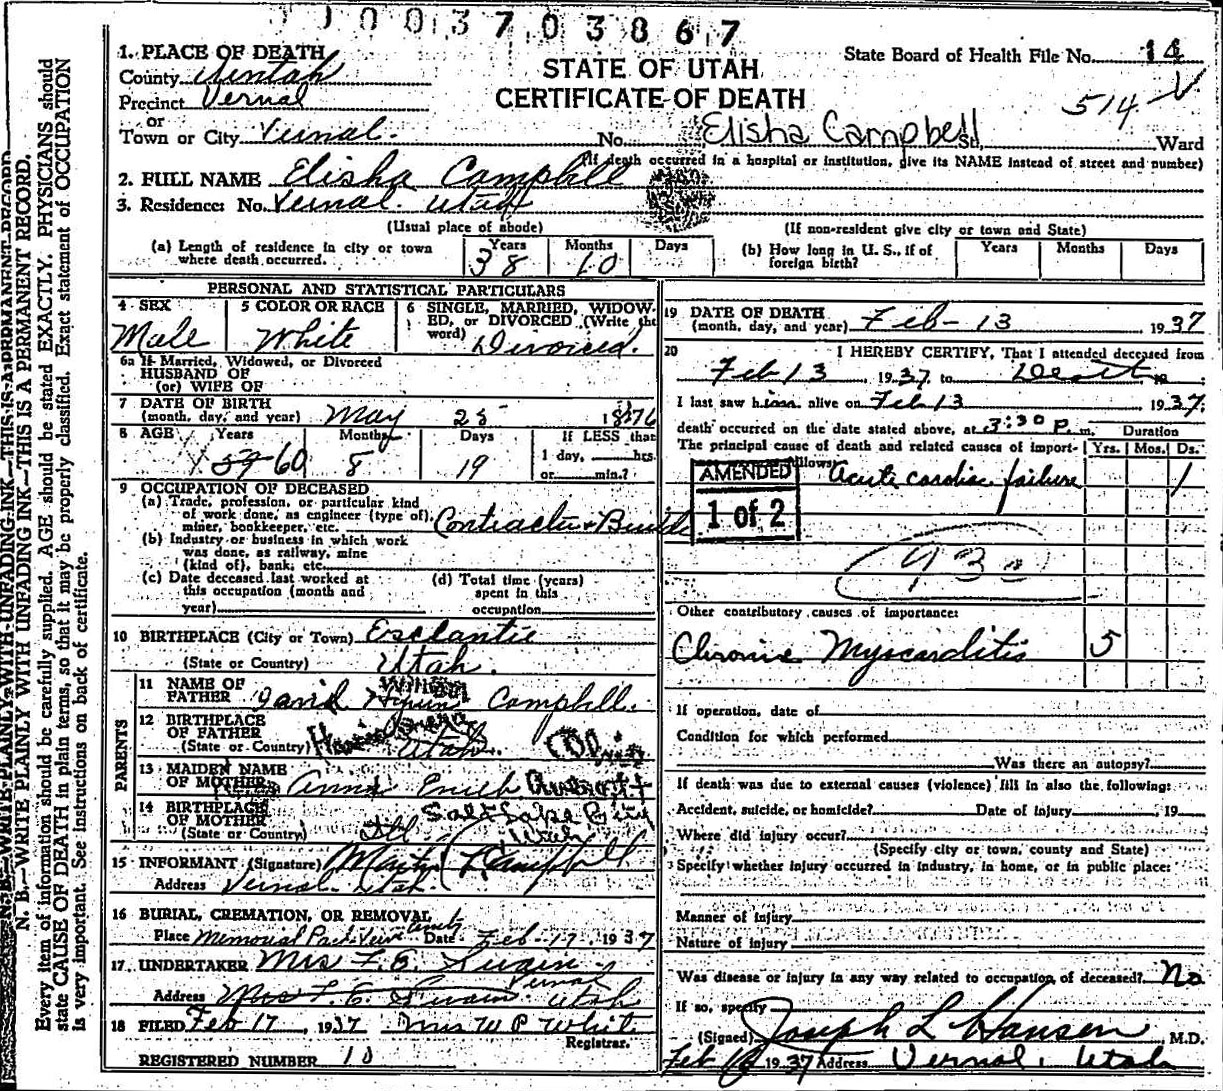 003703867
1. PLACE OF DEATH
County Uintah
Precinct Vernal
or
Town or City Vernal.
STATE OF UTAH
CERTIFICATE OF DEATH
State Board of Health File No. 14
514
No. Elisha Campbell St., Ward
(If death occurred in a hospital or institution, give its NAME instead of street and number)
2. FULL NAME Elisha Campbell
3. Residence: No. Vernal. Utah
(Usual place of abode)
(If non-resident give city or town and State)
(a) Length of residence in city or town where death occurred. Years 38 Months 10 Days
(b) How long in U. S., if of foreign birth? Years Months Days
PERSONAL AND STATISTICAL PARTICULARS
4 SEX Male
5 COLOR OR RACE White
6 SINGLE, MARRIED, WIDOWED, or DIVORCED (Write the word) Divorced.
6a If Married, Widowed, or Divorced
HUSBAND OF
(or) WIFE OF
7 DATE OF BIRTH
(month, day, and year) May 25 1876
8 AGE Years 59 60 Months 8 Days 19 If LESS than 1 day, hrs. or min.?
9 OCCUPATION OF DECEASED
(a) Trade, profession, or particular kind of work done, as engineer (type of), miner, bookkeeper, etc. Contractor & Build
(b) Industry or business in which work was done, as railway, mine (kind of), bank, etc.
(c) Date deceased last worked at this occupation (month and year)
(d) Total time (years) spent in this occupation
10 BIRTHPLACE (City or Town) Esclantie
(State or Country) Utah.
PARENTS
11 NAME OF FATHER David William Campbell.
12 BIRTHPLACE OF FATHER
(State or Country) Utah.
13 MAIDEN NAME OF MOTHER Anna
14 BIRTHPLACE OF MOTHER
(State or Country) Salt Lake City
Utah
15 INFORMANT (Signature) Campbell
Address Vernal. Utah.
16 BURIAL, CREMATION, OR REMOVAL
Place Memorial Park Date Feb-17 1937
17 UNDERTAKER Mrs F. E. Swain
Vernal
Address Mrs F. E. Swain Utah
18 FILED Feb 17, 1937 Mrs W P White
Registrar.
REGISTERED NUMBER 10
19 DATE OF DEATH
(month, day, and year) Feb-13 1937
20 I HEREBY CERTIFY, That I attended deceased from
Feb 13, 1937 to Death, 19
I last saw him alive on Feb 13 1937
death occurred on the date stated above, at 3:30 P. m. Duration
The principal cause of death and related causes of importance as follows: Yrs. Mos. Ds.
AMENDED
1 of 2
Acute cardiac failure 1
93
Other contributory causes of importance:
Chronic Myocarditis 5
If operation, date of
Condition for which performed
Was there an autopsy?
If death was due to external causes (violence) fill in also the following:
Accident, suicide, or homicide? Date of injury , 19
Where did injury occur?
(Specify city or town, county and State)
Specify whether injury occurred in industry, in home, or in public place:
Manner of injury
Nature of injury
Was disease or injury in any way related to occupation of deceased? No
If so, specify
(Signed) Joseph L Hansen M.D.
Feb 1937 Address Vernal, Utah
N. B.—WRITE PLAINLY WITH UNFADING INK—THIS IS A PERMANENT RECORD.
Every item of information should be carefully supplied. AGE should be stated EXACTLY. PHYSICIANS should
state CAUSE OF DEATH in plain terms, so that it may be properly classified. Exact statement of OCCUPATION
is very important. See instructions on back of certificate.